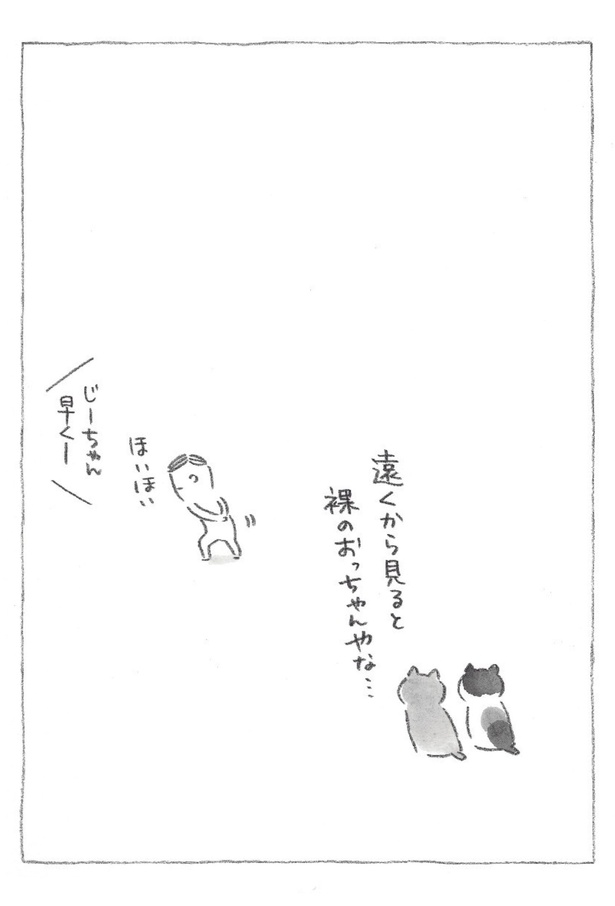 遠くから見ると
裸のおっちゃんやな…
ほいほい
じーちゃん
早くー